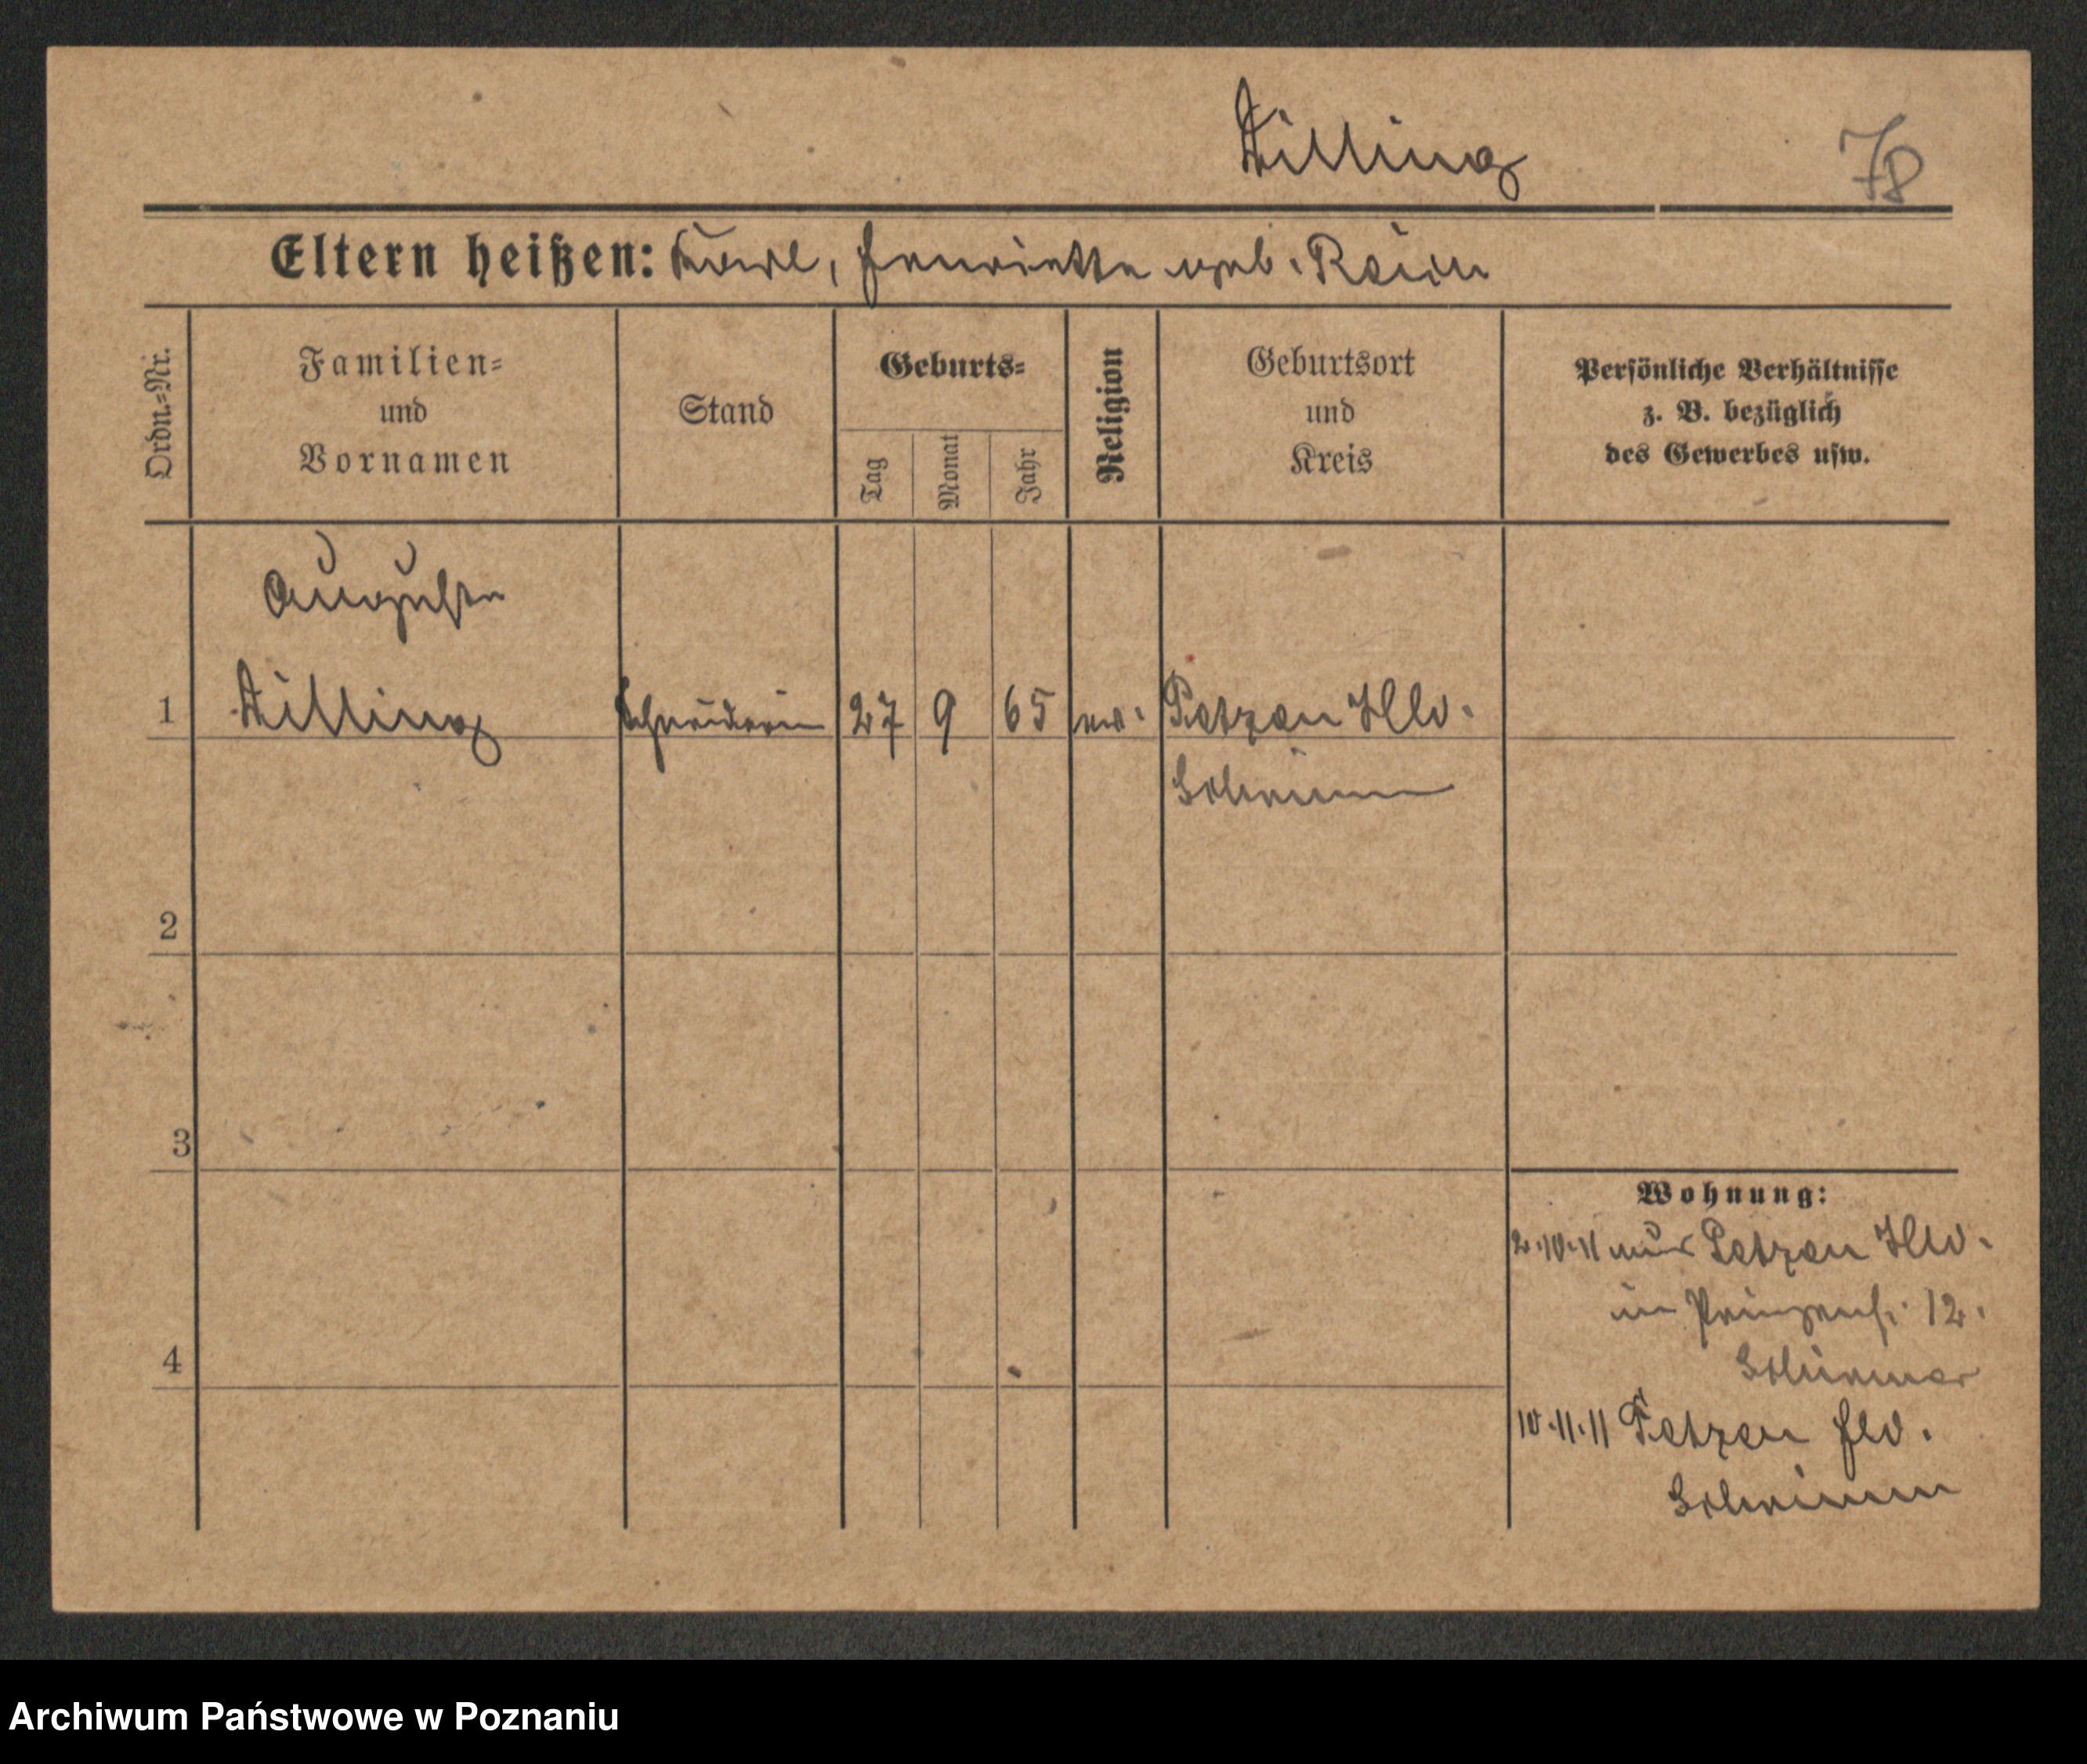 Dilling
78
Eltern heißen: Karl, Henriette geb. Rein
Ordn.-Nr.
Familien-
und
Vornamen
Stand
Geburts-
Tag
Monat
Jahr
Religion
Geburtsort
und
Kreis
Persönliche Verhältnisse
z. B. bezüglich
des Gewerbes usw.
Auguste
1 Dilling Schneiderin 27 9 65 ev. Petzen Hld.
2
3
4
Wohnung:
2.10.11 aus Petzen Hld.
in Prinzenst. 12.
10.11.11 Petzen Hld.
Archiwum Państwowe w Poznaniu